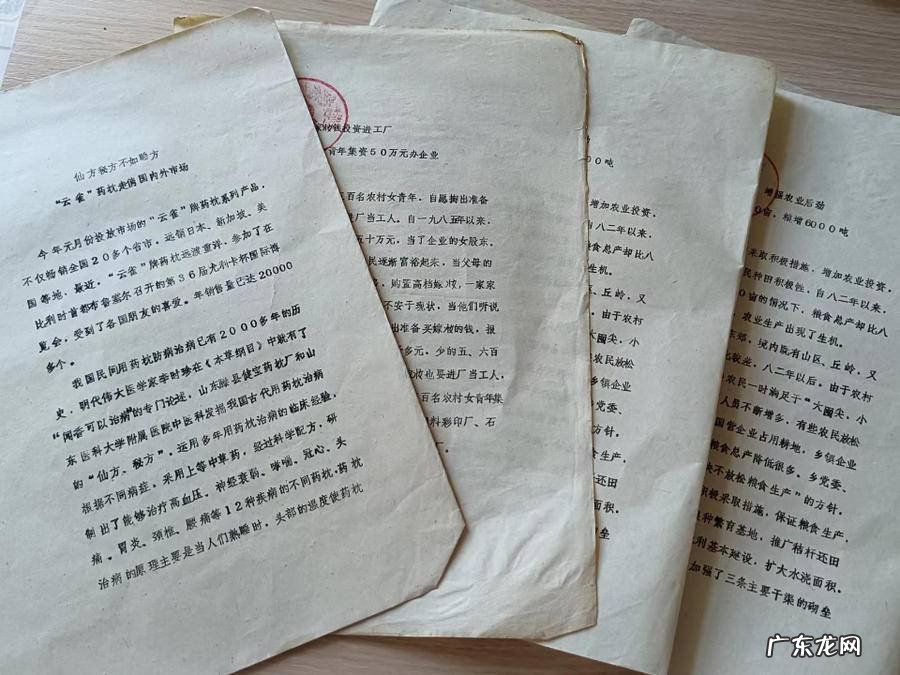 仙方秘方不如睡方
“云雀”药枕走俏国内外市场
今年元月份投放市场的“云雀”牌药枕系列产品，
不仅畅销全国20多个省市，远销日本、新加坡、美
国等地，最近，“云雀”牌药枕远渡重洋，参加了在
比利时首都布鲁塞尔召开的第36届尤利卡杯国际博
览会，受到了各国朋友的喜爱。年销售量已达20000
多个。
我国民间用药枕防病治病已有2000多年的历
史，明代伟大医学家李时珍在《本草纲目》中就有了
“闻香可以治病”的专门论述，山东滕县健宝药枕厂和山
东医科大学附属医院中医科发掘我国古代用药枕治病
的“仙方、秘方”，运用多年用药枕治病的临床经验，
根据不同病症，采用上等中草药，经过科学配方，研
制出了能够治疗高血压、神经衰弱、哮喘、冠心、头
痛、胃炎、颈椎、腰痛等12种疾病的不同药枕，药枕
治病的原理主要是当人们熟睡时，头部的温度使药枕
嫁妆钱投资进工厂
青年集资50万元办企业
百名农村女青年，自愿掏出准备
进厂当工人，自一九八五年以来，
五十万元，当了企业的女股东，
民逐渐富裕起来，当父母的
，购置高档嫁妆，一家家
不安于现状，当他们听说
出准备买嫁妆的钱，报
多元，少的五、六百
妆也要进厂当工人，
百名农村女青年集
料彩印厂、石
00吨
增加农业投资，
自八二年以来，
粮食总产却比八
生机。
丘、丘岭，又
，由于农村
大圈尖，小
农民放松
乡镇企业
乡党委、
方针。
生产，
还田
面积。
砌垒
增强农业后劲
0亩，粮增6000吨
采取积极措施，增加农业投资，
民种田积极性，自八二年以来，
0亩的情况下，粮食总产却比八
，农业生产出现了生机。
东郊，境内既有山区、丘岭，又
比较差，八二年以后，由于农村
农民一时满足于“大圈尖，小
人员不断增多，有些农民放松
国营企业占用耕地，乡镇企业
粮食总产降低很多，乡党委、
决不放松粮食生产”的方针。
积极采取措施，保证粮食生产，
良种繁育基地，推广秸杆还田
利基本建设，扩大水浇面积。
加强了三条主要干渠的砌垒
广东龙网